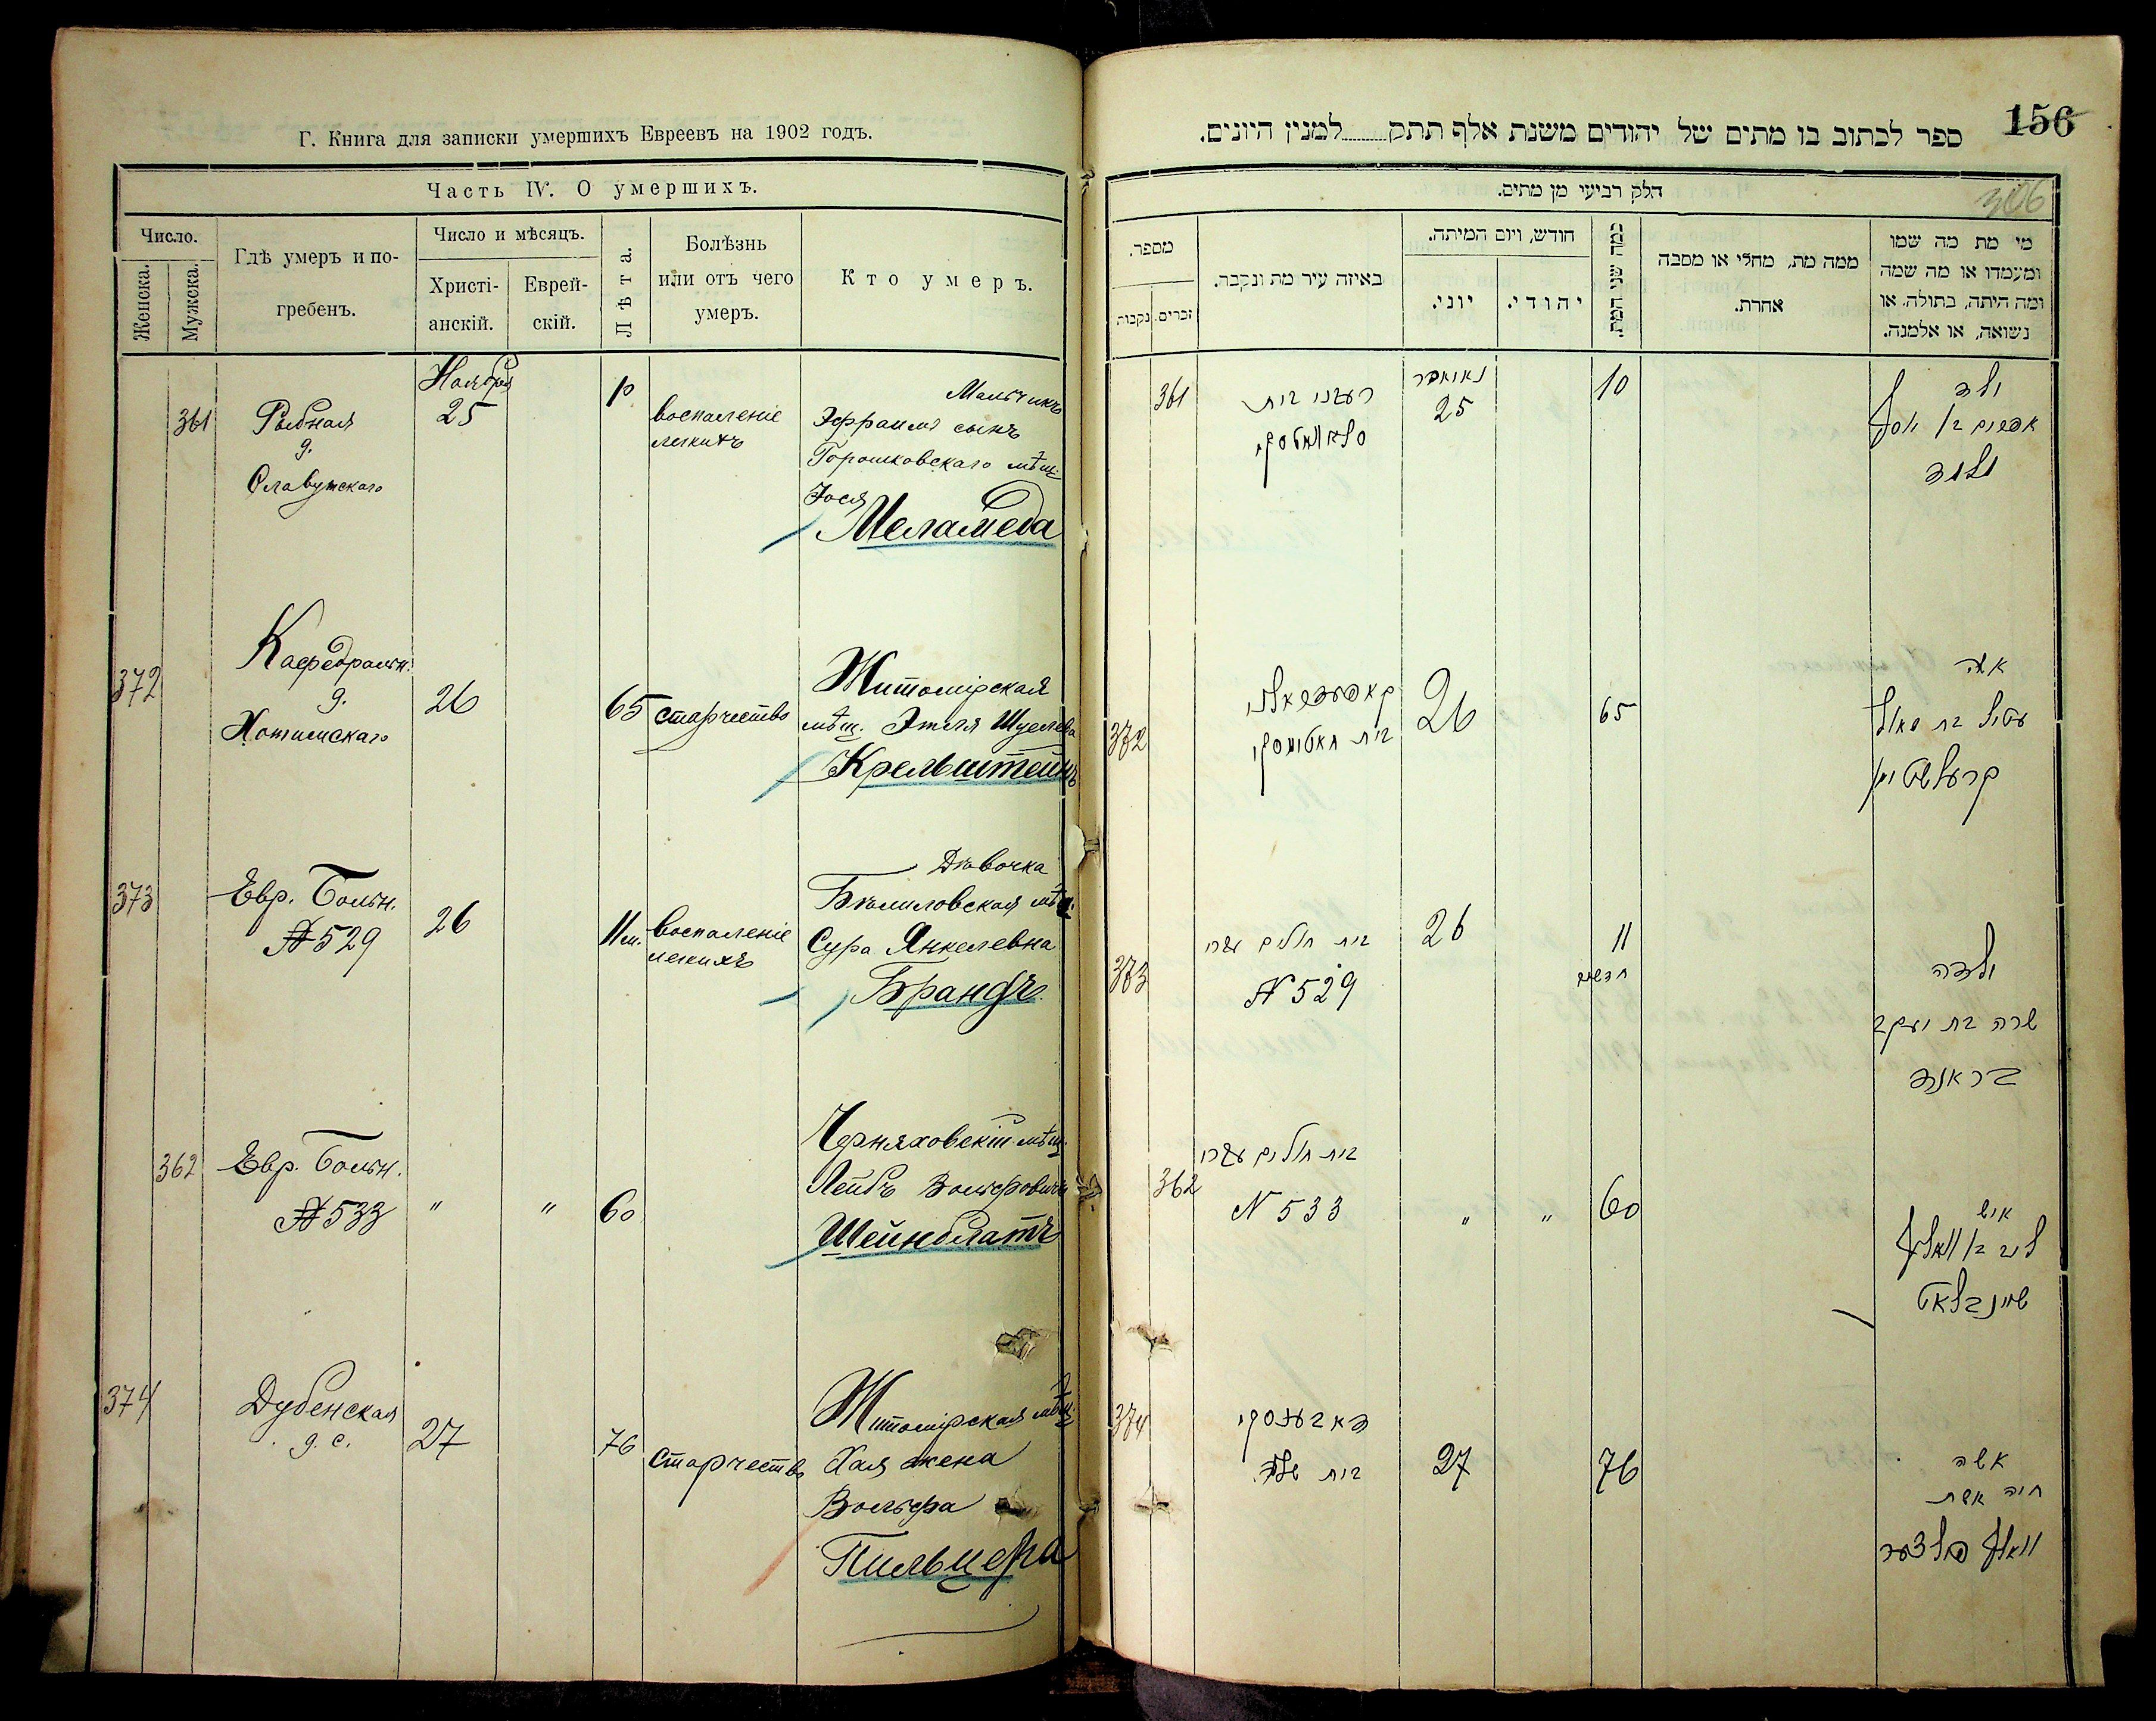 Г. Книга для записки умершихъ Евреевъ на 1902 годъ.
Часть IV. О умершихъ.
Число.
Женска.
Мужска.
Гдѣ умеръ и по-
гребенъ.
Число и мѣсяцъ.
Христі-
анскій.
Еврей-
скій.
Лѣта.
Болѣзнь
или отъ чего
умеръ.
Кто умеръ.
361
Рыбная
д.
Славутскаго
Ноября
25
воспаленіе
легкихъ
Мальчикъ
Эфраимъ сынъ
Горошковскаго мѣщ.
Іося
Меламеда
372
Кафедральн.
д.
Хотимскаго
26
65
старчество
Житомірская
мѣщ. Этля
Крельштейнъ
373
Евр. Больн.
№ 529
26
11 м.
воспаленіе
легкихъ
Дѣвочка
Бѣлиловская мѣщ.
Сура Янкелевна
Брандъ.
362
Евр. Больн.
№ 533
"
"
60
Черняховскій мѣщ.
Лейбъ Вольфовичъ
Шейнблатъ
374
Дубенская
д. с.
27
76
старчество
Житомірская мѣщ.
Хая жена
Вольфа
Пильцера
156
ספר לכתוב בו מתים של יהודים משנת אלף תתק........למנין היונים.
306
חלק רביעי מן מתים.
מספר.
זכרים.
נקבות
באיזה עיר מת ונקבר.
חודש, ויום המיתה.
יוני.
יהודי.
כמה שני המת.
ממה מת, מחלי או מסבה
אחרת.
מי מת מה שמו
ומעמדו או מה שמה
ומה היתה, בתולה, או
נשואה, או אלמנה.
361
נאואבר
25
10
ילד
אפרים בן יוסף
372
26
65
אשה
קרעלשטיין
373
בית חולים עברי
№ 529
26
11
חדשים
ילדה
שרה בת יעקב
בראנד
362
בית חולים עברי
N 533
"
"
60
איש
ליב בן וואלף
שיינבלאט
374
27
76
אשה
חיה אשת
וואלף פילצער